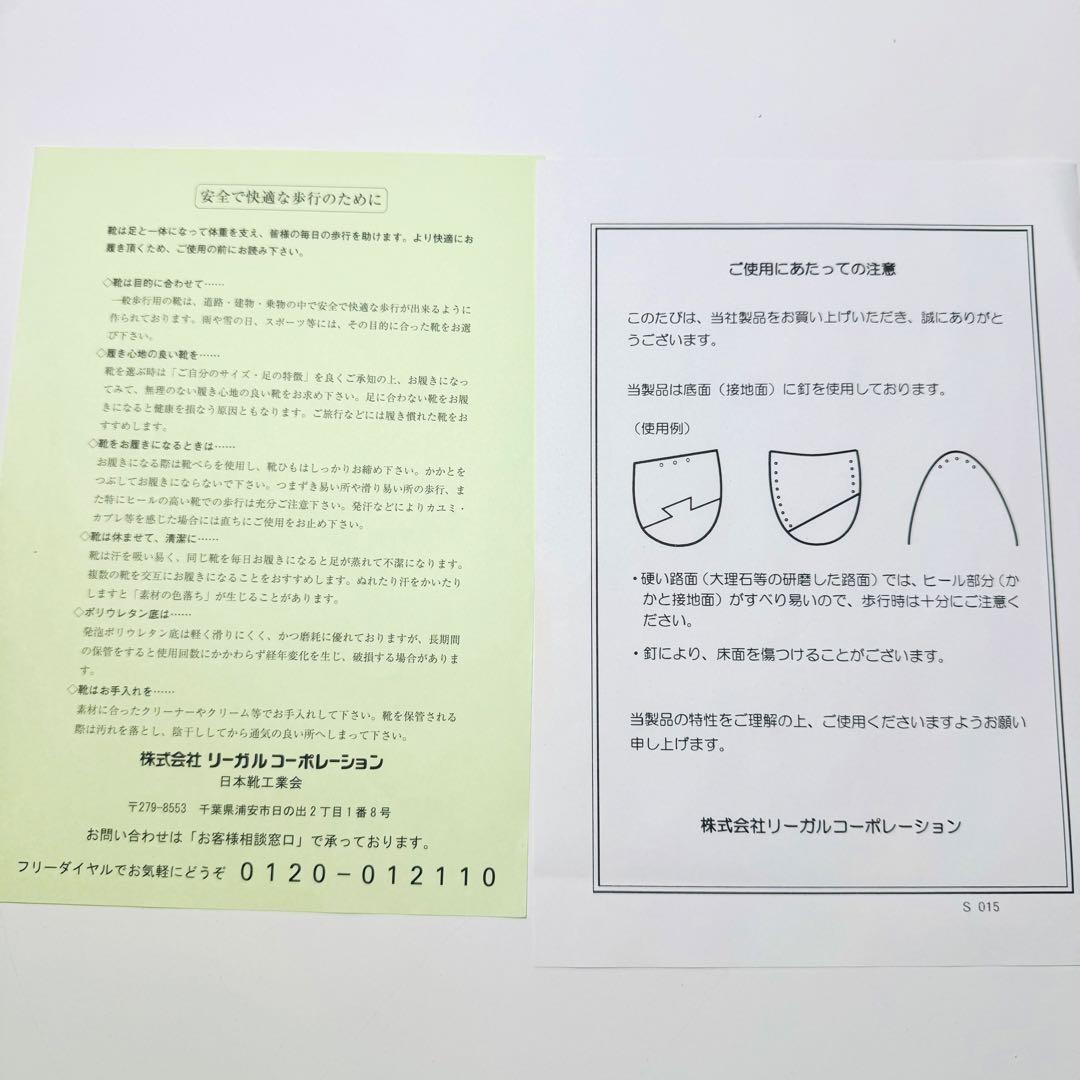 安全で快適な歩行のために
靴は足と一体になって体重を支え、皆様の毎日の歩行を助けます。より快適にお
履き頂くため、ご使用の前にお読み下さい。
◇靴は目的に合わせて……
一般歩行用の靴は、道路・建物・乗物の中で安全で快適な歩行が出来るように
作られております。雨や雪の日、スポーツ等には、その目的に合った靴をお選
び下さい。
◇履き心地の良い靴を……
靴を選ぶ時は「ご自分のサイズ・足の特徴」を良くご承知の上、お履きになっ
てみて、無理のない履き心地の良い靴をお求め下さい。足に合わない靴をお履
きになると健康を損なう原因ともなります。ご旅行などには履き慣れた靴をお
すすめします。
◇靴をお履きになるときは……
お履きになる際は靴べらを使用し、靴ひもはしっかりお締め下さい。かかとを
つぶしてお履きにならないで下さい。つまずき易い所や滑り易い所の歩行、ま
た特にヒールの高い靴での歩行は充分ご注意下さい。発汗などによりカユミ・
カブレ等を感じた場合には直ちにご使用をお止め下さい。
◇靴は休ませて、清潔に……
靴は汗を吸い易く、同じ靴を毎日お履きになると足が蒸れて不潔になります。
複数の靴を交互にお履きになることをおすすめします。ぬれたり汗をかいたり
しますと「素材の色落ち」が生じることがあります。
◇ポリウレタン底は……
発泡ポリウレタン底は軽く滑りにくく、かつ磨耗に優れておりますが、長期間
の保管をすると使用回数にかかわらず経年変化を生じ、破損する場合がありま
す。
◇靴はお手入れを……
素材に合ったクリーナーやクリーム等でお手入れして下さい。靴を保管される
際は汚れを落とし、陰干ししてから通気の良い所へしまって下さい。
株式会社 リーガル コーポレーション
日本靴工業会
〒279-8553 千葉県浦安市日の出2丁目1番8号
お問い合わせは「お客様相談窓口」で承っております。
フリーダイヤルでお気軽にどうぞ 0120-012110
ご使用にあたっての注意
このたびは、当社製品をお買い上げいただき、誠にありがと
うございます。
当製品は底面（接地面）に釘を使用しております。
（使用例）
・硬い路面（大理石等の研磨した路面）では、ヒール部分（か
かと接地面）がすべり易いので、歩行時は十分にご注意く
ださい。
・釘により、床面を傷つけることがございます。
当製品の特性をご理解の上、ご使用くださいますようお願い
申し上げます。
株式会社リーガルコーポレーション
S 015